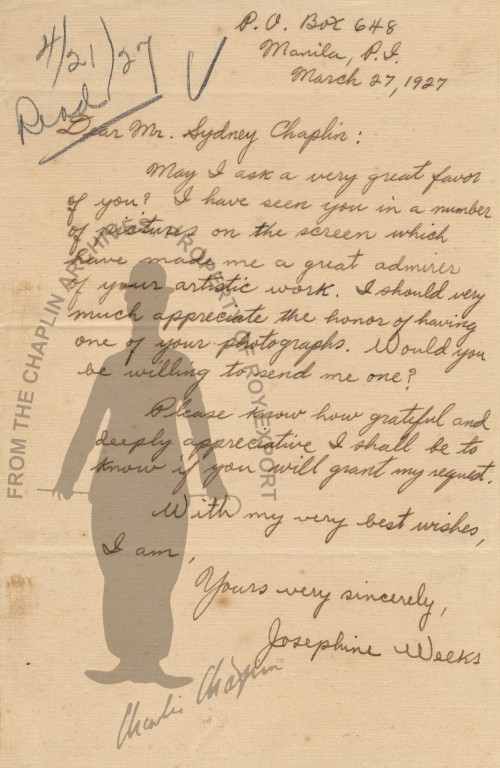 4/21/27
Read
P. O. Box 648
Manila, P.I.
March 27, 1927
Dear Mr. Sydney Chaplin:
May I ask a very great favor
of you? I have seen you in a number
of pictures on the screen which
have made me a great admirer
of your artistic work. I should very
much appreciate the honor of having
one of your photographs. Would you
be willing to send me one?
Please know how grateful and
deeply appreciative I shall be to
know if you will grant my request.
With my very best wishes,
I am,
Yours very sincerely,
Josephine Weeks
FROM THE CHAPLIN ARCHIVES PROPERTY OF ROY EXPORT
Charlie Chaplin